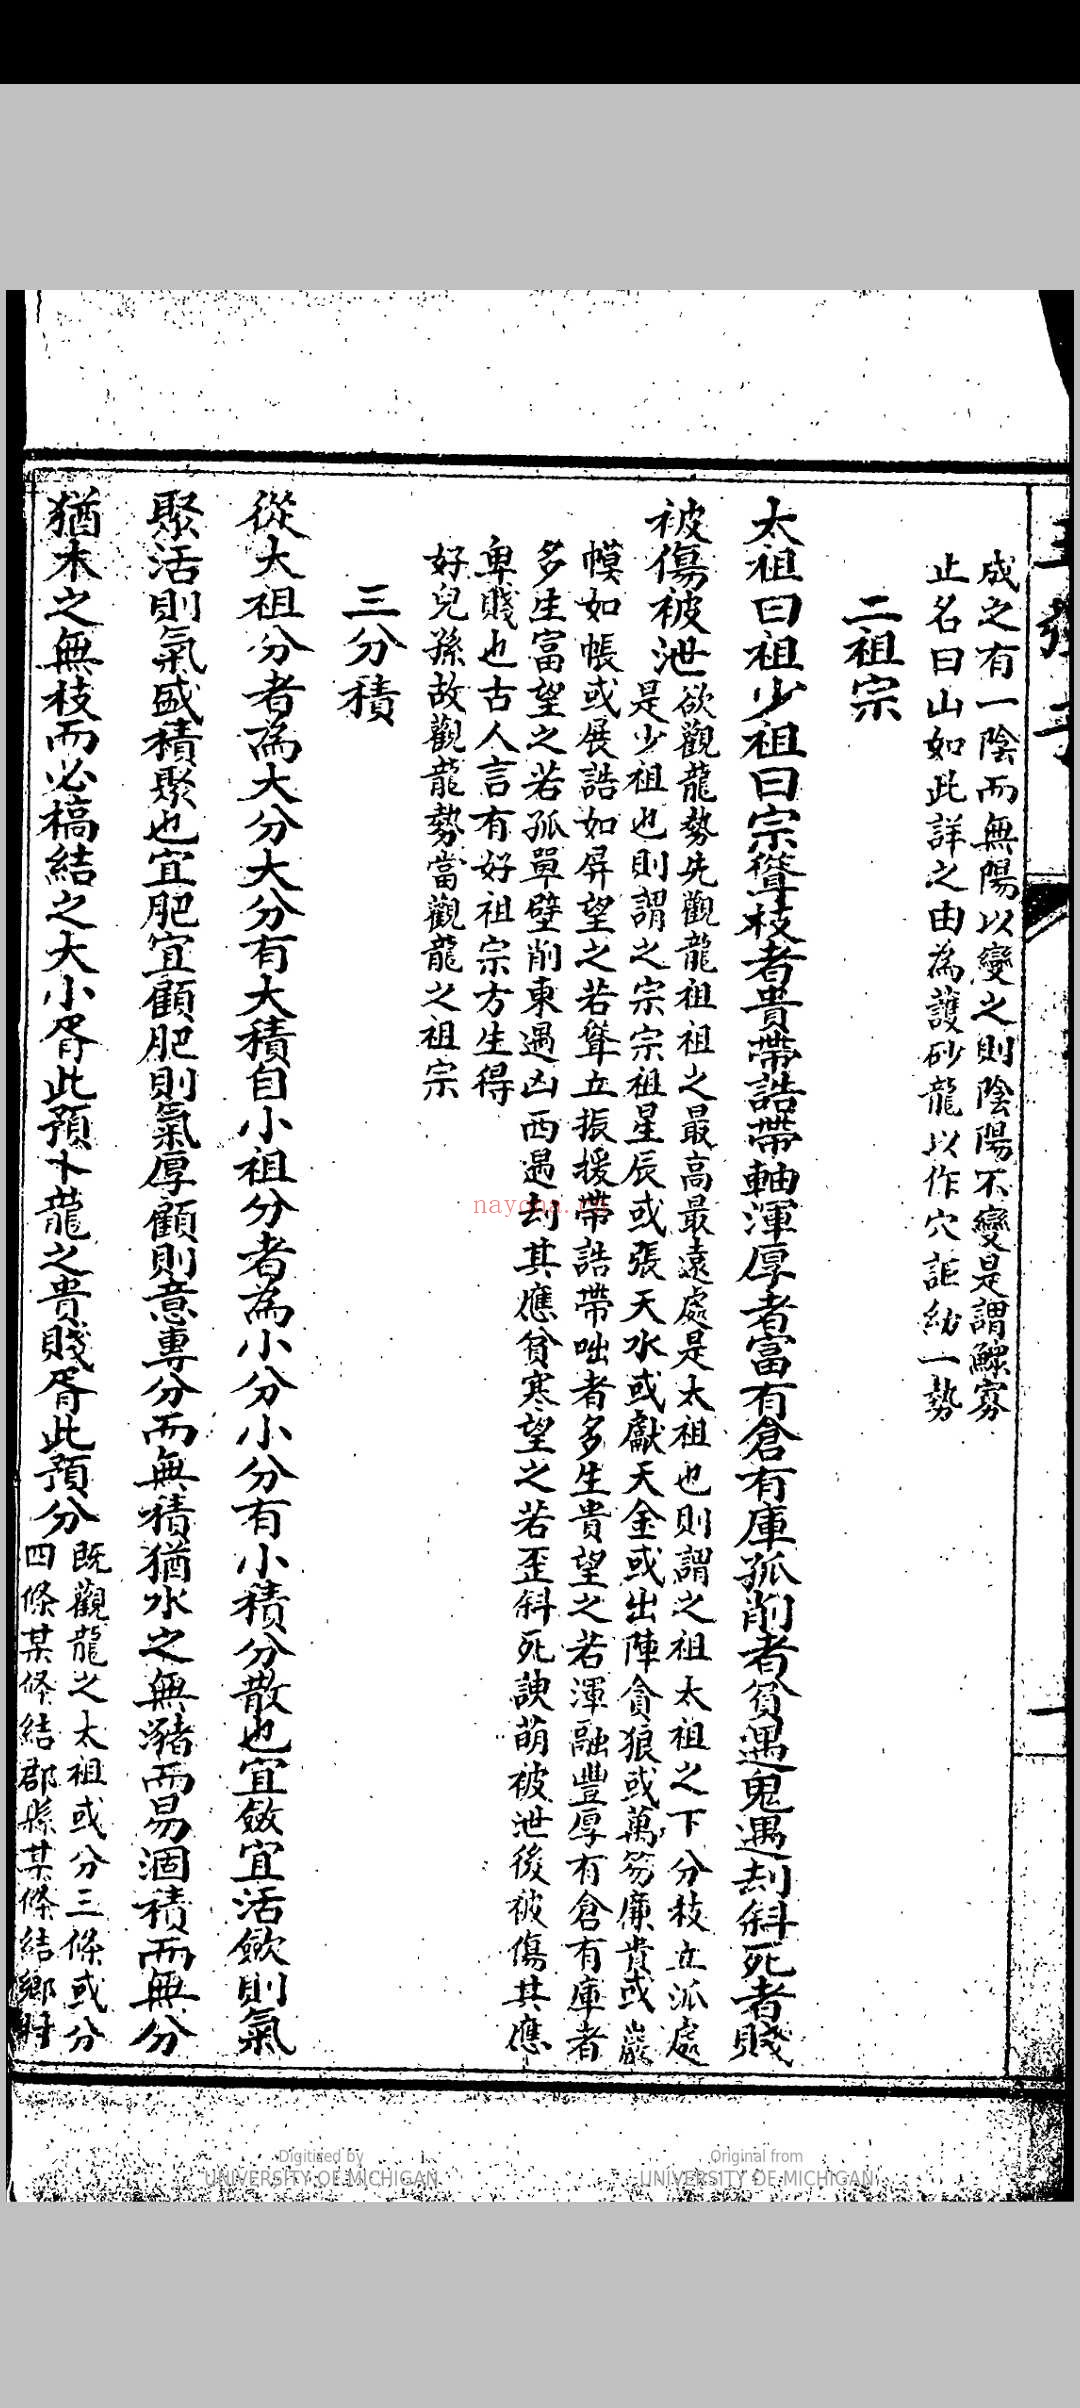 成之有一陰而無陽以變之則陰陽不變是謂鰥寡
止名曰山如此詳之由為護砂龍以作穴詎紗一勢
二祖宗
太祖曰祖少祖曰宗聳枝者貴帶誥帶軸渾厚者富有倉有庫孤削者貧遇鬼遇刦斜死者賤
被傷被泄
欲觀龍勢先觀龍祖祖之最高最遠處是太祖也則謂之祖太祖之下分枝立派處
是少祖也則謂之宗宗祖星辰或張天水或獻天金或出陣貪狼或萬笏廉貴或巖
幙如帳或展誥如屏望之若聳立振援帶誥帶咄者多生貴望之若渾融豐厚有倉有庫者
多生富望之若孤單壁削東遇凶西遇刦其應貧寒望之若歪斜死諛萌被泄後被傷其應
卑賤也古人言有好祖宗方生得
好兒孫故觀龍勢當觀龍之祖宗
三分積
從大祖分者為大分大分有大積自小祖分者為小分小分有小積分散也宜斂宜活斂則氣
聚活則氣盛積聚也宜肥宜顧肥則氣厚顧則意專分而無積猶水之無瀦而易涸積而無分
猶木之無枝而必槁結之大小胥此預卜龍之貴賤胥此預分
既觀龍之太祖或分三條或分
四條某條結郡縣某條結鄉村
nayona.cn
Digitized by
UNIVERSITY OF MICHIGAN
Original from
UNIVERSITY OF MICHIGAN